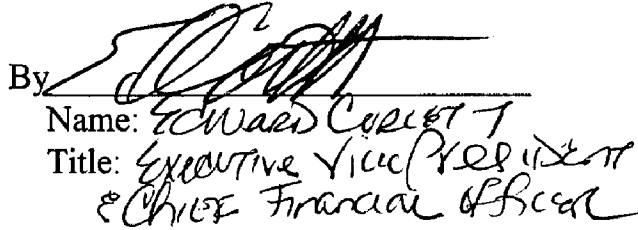 By
Name: Edward
Title: Executive Vice President
& Chief Financial Officer